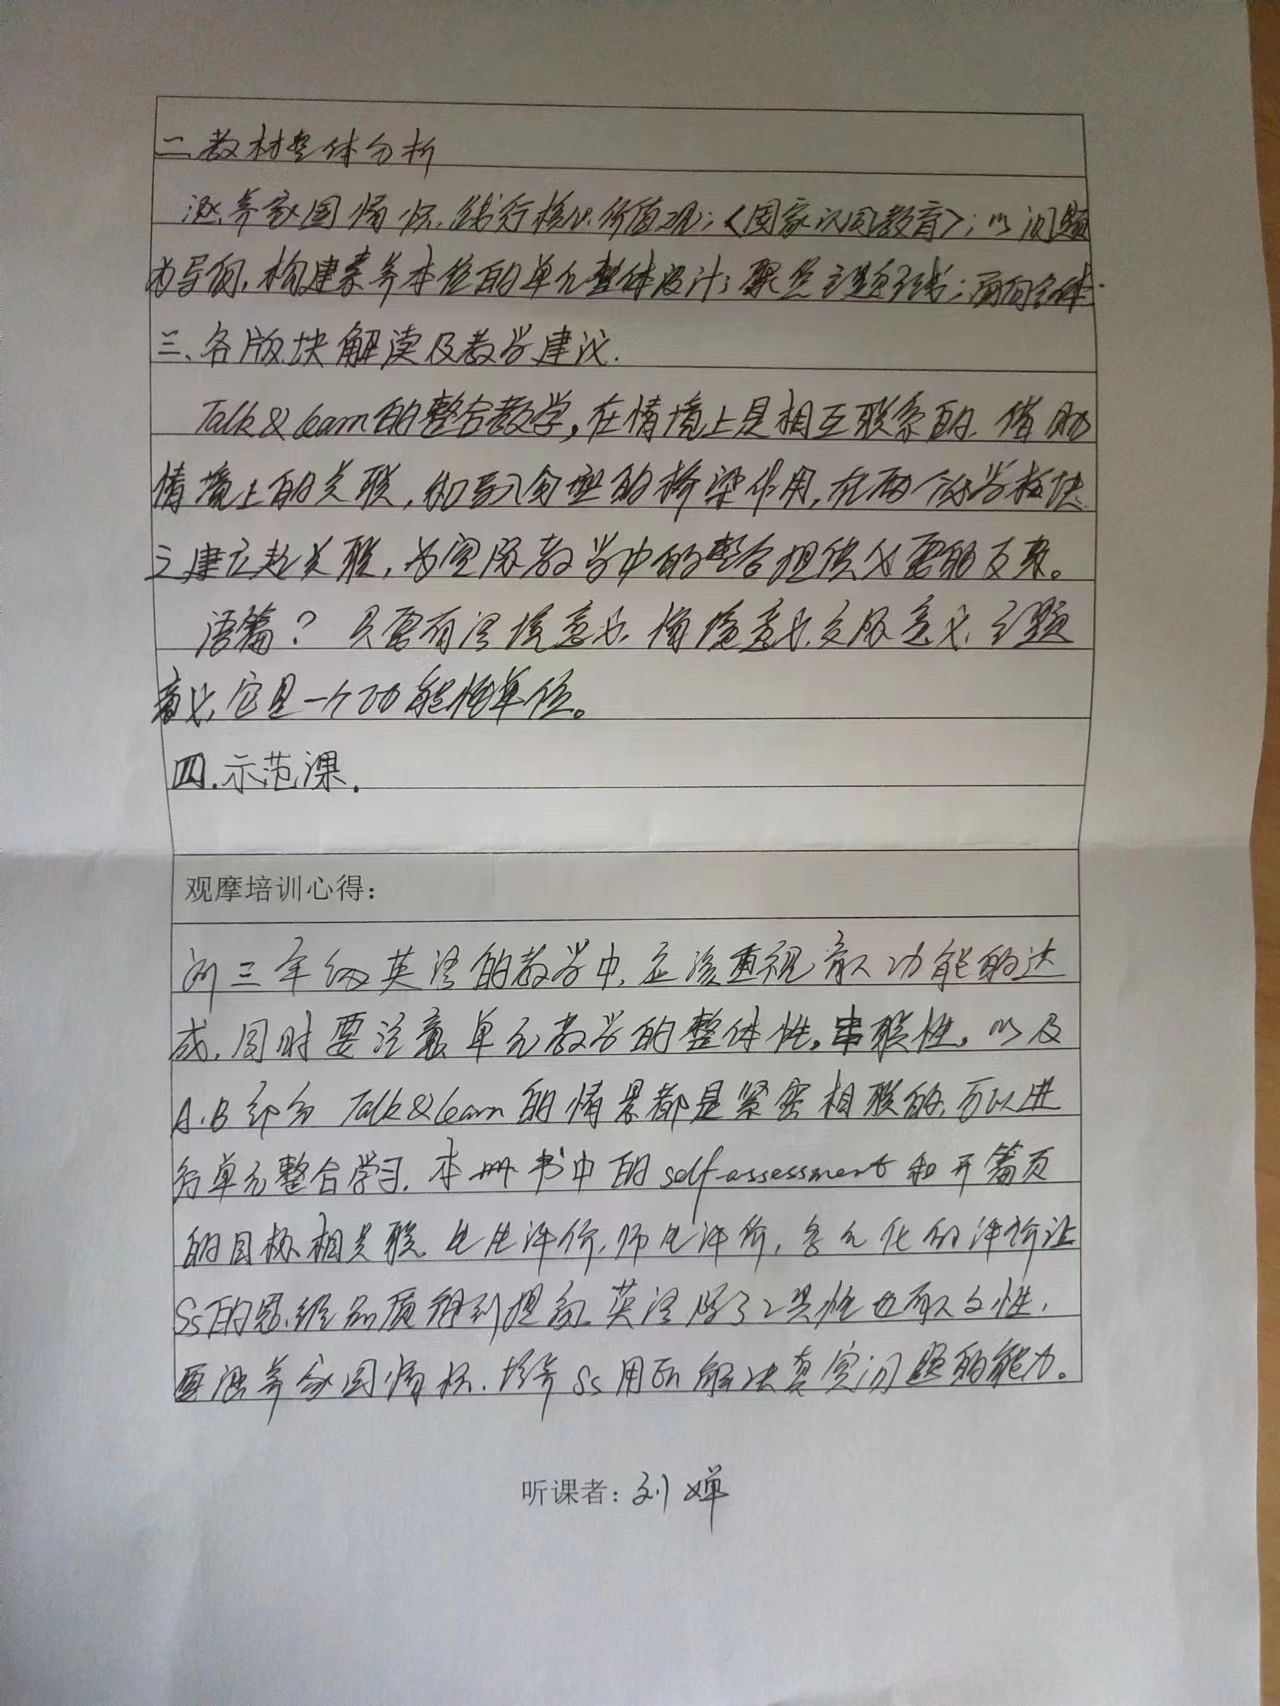 二.教材整体分析
涵养家国情怀,践行核心价值观;《国家认同教育》;以问题
为导向,构建素养本位的单元整体设计;聚焦主题主线;面向全体.
三、各版块解读及教学建议.
Talk & learn的整合教学,在情境上是相互联系的.借助
情境上的关联,的导入句型的桥梁作用,在两个教学板块
之建立起关联,为实际教学中的整合提供必要的支架。
语篇? 只要有语境意义,情境意义,交际意义,主题
意义,它是一个功能性单位。
四.示范课.
观摩培训心得:
对三年级英语的教学中,应该重视育人功能的达
成,同时要注意单元教学的整体性,串联性,以及
A.B部分 Talk & learn的情景都是紧密相联的,可以进
行单元整合学习.本册书中的self-assessment和开篇页
的目标相关联.生生评价,师生评价,多元化的评价让
Ss的思维品质得到提高.英语除了工具性也有人文性,
要涵养家国情怀.培养Ss用En解决真实问题的能力。
听课者:刘婵